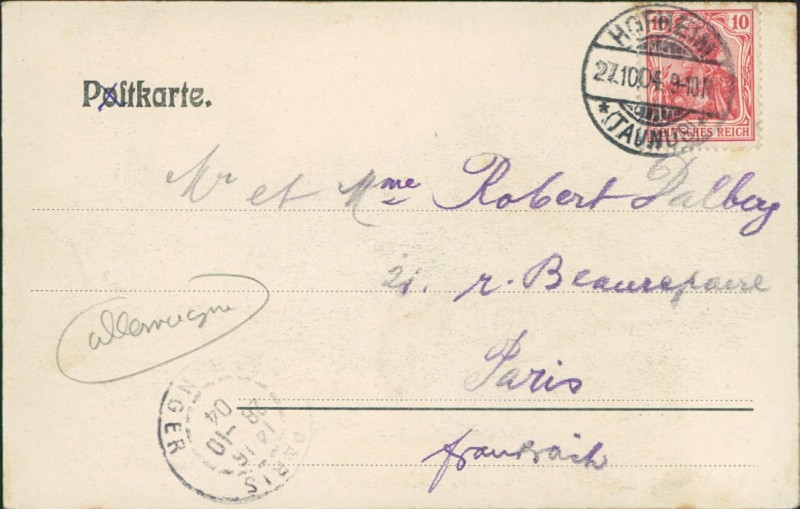 Postkarte.
10 10
DEUTSCHES REICH
HOFHEIM
27.10.04. 9-10
*(TAUNUS)*
Mr et Mme Robert Dalberg
21. r. Beaurepaire
allemagne
Paris
PARIS
ETRANGER
10
04
frankreich